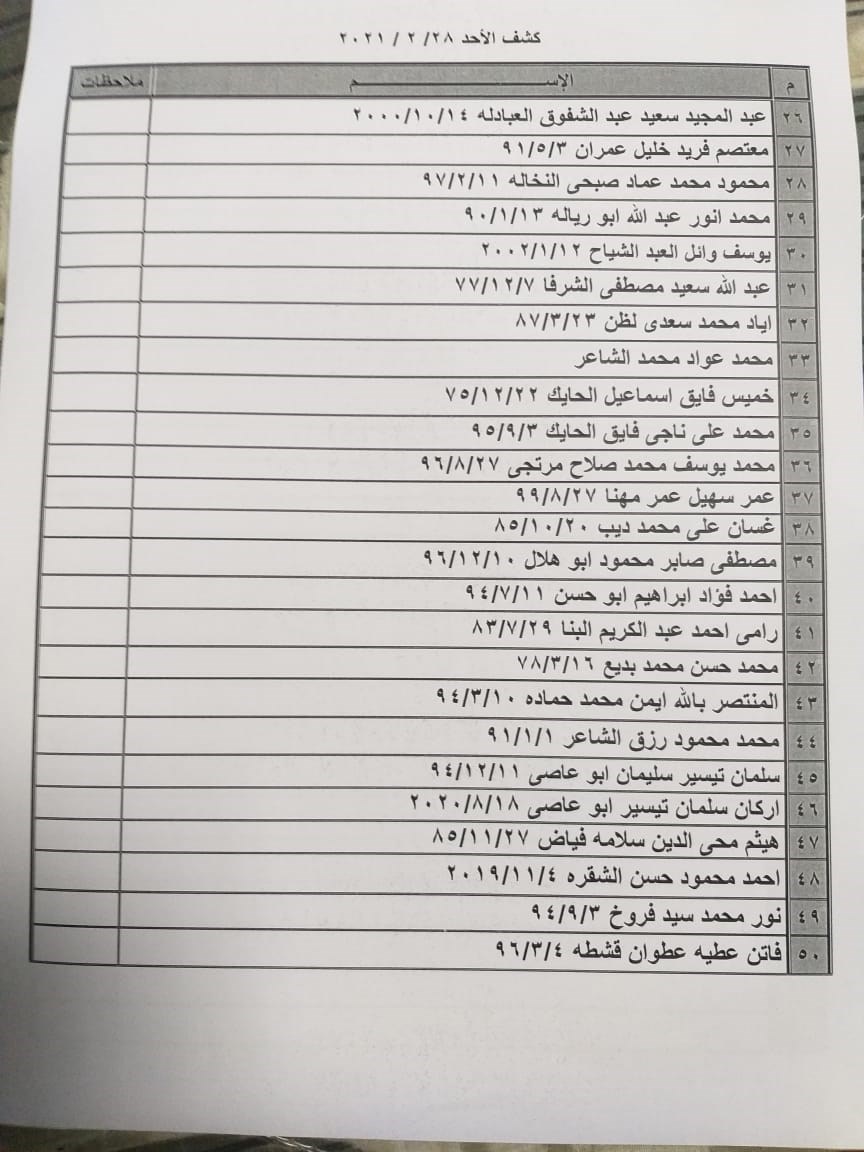 كشف الأحد ٢٨/ ٢ / ٢٠٢١
م الإســـــــــــــــم ملاحظات
٢٦ عبد المجيد سعيد عبد الشفوق العبادله ٢٠٠٠/١٠/١٤
٢٧ معتصم فريد خليل عمران ٩١/٥/٣
٢٨ محمود محمد عماد صبحى النخاله ٩٧/٢/١١
٢٩ محمد انور عبد الله ابو رياله ٩٠/١/١٣
٣٠ يوسف وائل العبد الشياح ٢٠٠٢/١/١٢
٣١ عبد الله سعيد مصطفى الشرفا ٧٧/١٢/٧
٣٢ اياد محمد سعدى لظن ٨٧/٣/٢٣
٣٣ محمد عواد محمد الشاعر
٣٤ خميس فايق اسماعيل الحايك ٧٥/١٢/٢٢
٣٥ محمد على ناجى فايق الحايك ٩٥/٩/٣
٣٦ محمد يوسف محمد صلاح مرتجى ٩٦/٨/٢٧
٣٧ عمر سهيل عمر مهنا ٩٩/٨/٢٧
٣٨ غسان على محمد ديب ٨٥/١٠/٢٠
٣٩ مصطفى صابر محمود ابو هلال ٩٦/١٢/١٠
٤٠ احمد فؤاد ابراهيم ابو حسن ٩٤/٧/١١
٤١ رامى احمد عبد الكريم البنا ٨٣/٧/٢٩
٤٢ محمد حسن محمد بديع ٧٨/٣/١٦
٤٣ المنتصر بالله ايمن محمد حماده ٩٤/٣/١٠
٤٤ محمد محمود رزق الشاعر ٩١/١/١
٤٥ سلمان تيسير سليمان ابو عاصى ٩٤/١٢/١١
٤٦ اركان سلمان تيسير ابو عاصى ٢٠٢٠/٨/١٨
٤٧ هيثم محى الدين سلامه فياض ٨٥/١١/٢٧
٤٨ احمد محمود حسن الشقره ٢٠١٩/١١/٤
٤٩ نور محمد سيد فروخ ٩٤/٩/٣
٥٠ فاتن عطيه عطوان قشطه ٩٦/٣/٤